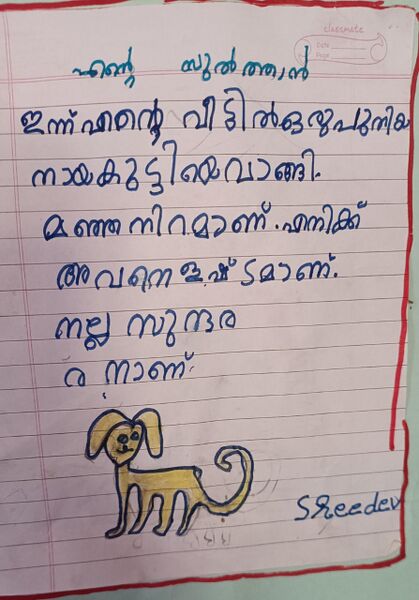 classmate
Date
Page
എന്റെ സുൽത്താൻ
ഇന്ന് എന്റെ വീട്ടിൽ ഒരു പുതിയ
നായകുട്ടിയെ വാങ്ങി.
മഞ്ഞ നിറമാണ്. എനിക്ക്
അവനെ ഇഷ്ടമാണ്.
നല്ല സുന്ദര
ര നാണ്.
Sreedev